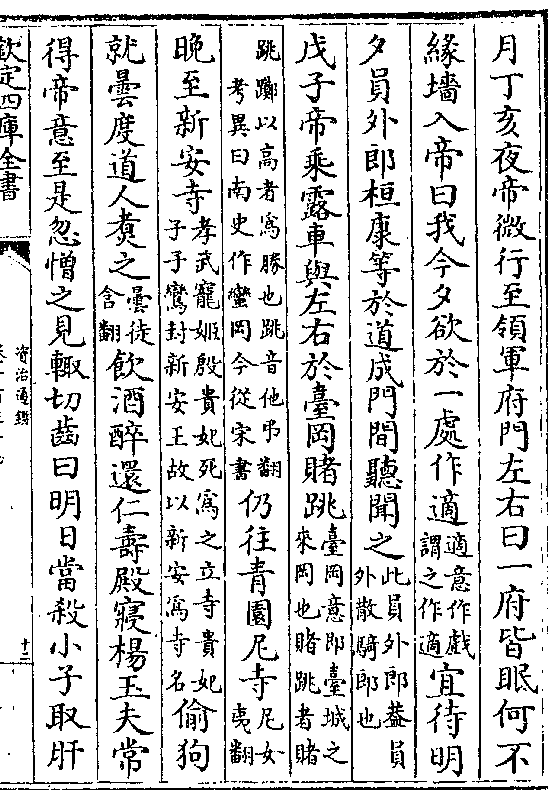 月丁亥夜帝微行至領軍府門左右曰一府皆眠何不
緣墻入帝曰我今夕欲於一處作適適意作戲謂之作適宜待明
夕員外郎桓康等於道成門間聽聞之此員外郎葢員外散騎郎也
戊子帝乘露車與左右於臺岡賭跳臺岡意即臺城之來岡也賭跳者賭
跳躑以高者爲勝也跳音他弔翻考異曰南史作蠻岡今從宋書仍往青園尼寺尼女夷翻
晚至新安寺孝武寵姬殷貴妃死爲之立寺貴妃子子鸞封新安王故以新安爲寺名偷狗
就曇度道人煑之曇徒含翻飲酒醉還仁壽殿寢楊玉夫常
得帝意至是忽憎之見輙切齒曰明日當殺小子取肝
欽定四庫全書
資治通鑑
十二